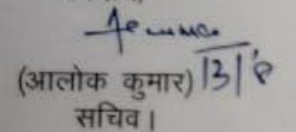 (आलोक कुमार) 13/8
सचिव।